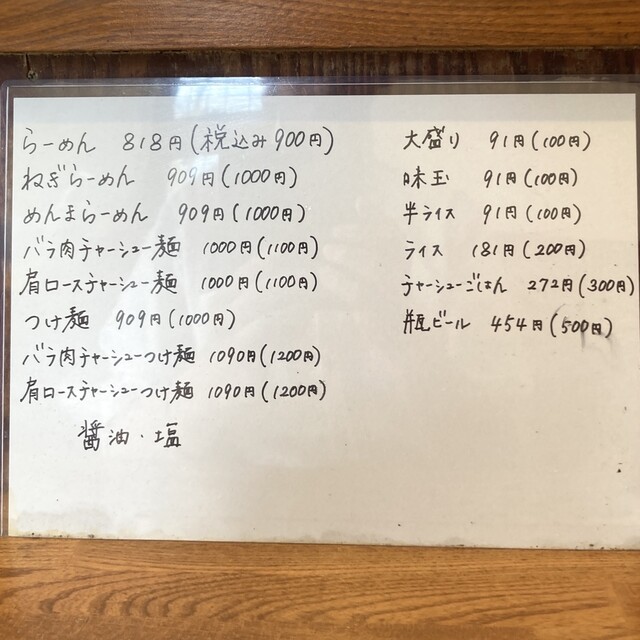 らーめん 818円(税込み900円)
ねぎらーめん 909円(1000円)
めんまらーめん 909円(1000円)
バラ肉チャーシュー麺 1000円(1100円)
肩ロースチャーシュー麺 1000円(1100円)
つけ麺 909円(1000円)
バラ肉チャーシューつけ麺 1090円(1200円)
肩ロースチャーシューつけ麺 1090円(1200円)
醤油・塩
大盛り 91円(100円)
味玉 91円(100円)
半ライス 91円(100円)
ライス 181円(200円)
チャーシューごはん 272円(300円)
瓶ビール 454円(500円)